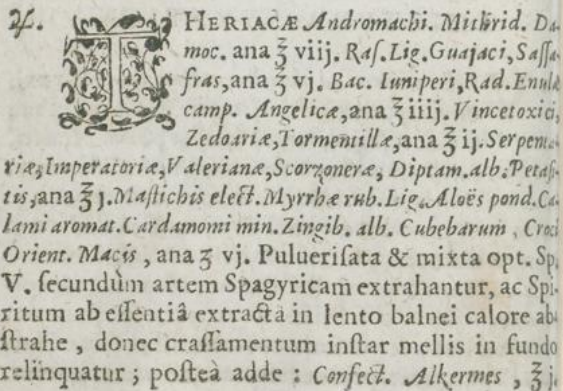 ℞. THERIACÆ Andromachi. Mithrid. Da-
moc. ana ℥ viij. Raſ. Lig. Guajaci, Saſſa-
fras, ana ℥ vj. Bac. Iuniperi, Rad. Enulæ
camp. Angelicæ, ana ℥ iiij. Vincetoxici,
Zedoariæ, Tormentillæ, ana ℥ ij. Serpenta-
riæ, Imperatoriæ, Valerianæ, Scorzoneræ, Diptam. alb. Petaſi-
tis, ana ℥ j. Maſtichis elect. Myrrhæ rub. Lig. Aloës pond. Ca-
lami aromat. Cardamomi min. Zingib. alb. Cubebarum, Croci
Orient. Macis, ana ʒ vj. Pulueriſata & mixta opt. Sp.
V. ſecundùm artem Spagyricam extrahantur, ac Spi-
ritum ab eſſentiâ extractâ in lento balnei calore ab-
ſtrahe, donec craſſamentum inſtar mellis in fundo
relinquatur; poſteà adde: Confect. Alkermes, ℥ j.